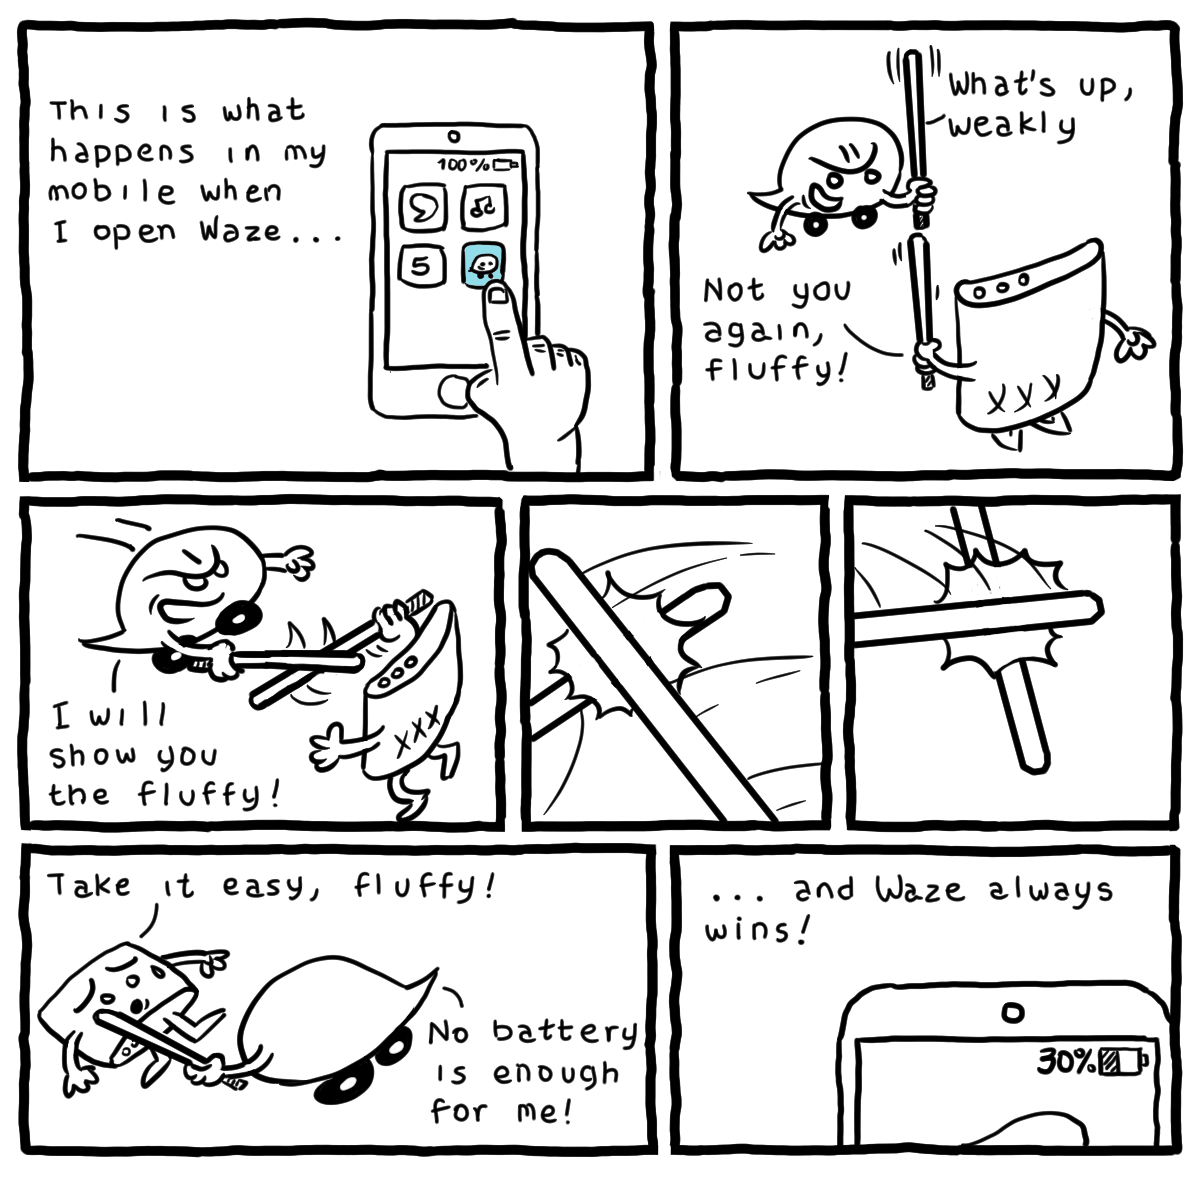 This is what
happens in my
mobile when
I open Waze...
100%
5
What's up,
weakly
Not you
again,
fluffy!
XXX
I will
show you
the fluffy!
XXX
Take it easy, fluffy!
No battery
is enough
for me!
... and Waze always
wins!
30%